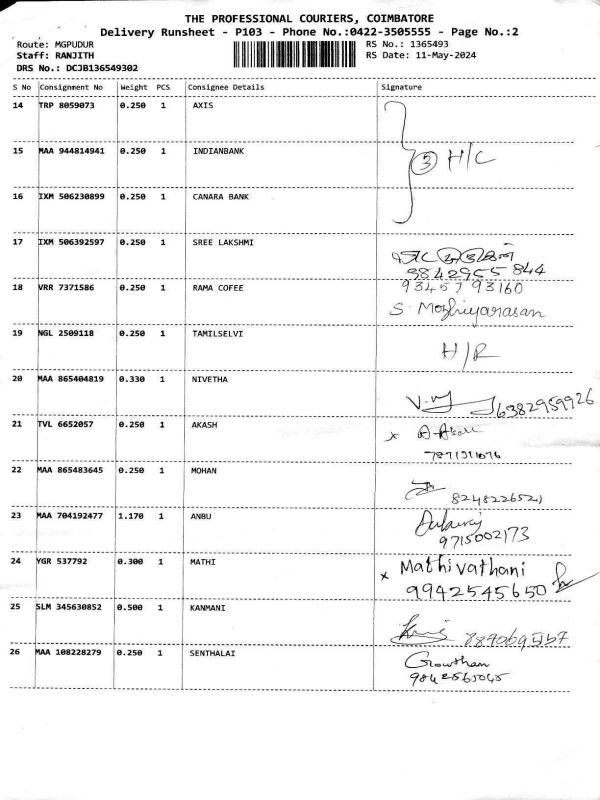 THE PROFESSIONAL COURIERS, COIMBATORE
Delivery Runsheet - P103 - Phone No.:0422-3505555 - Page No.:2
Route: MGPUDUR RS No.: 1365493
Staff: RANJITH RS Date: 11-May-2024
DRS No.: DCJB136549302
S No Consignment No Weight PCS Consignee Details Signature
14 TRP 8059073 0.250 1 AXIS
15 MAA 944814941 0.250 1 INDIANBANK 3 H/C
16 IXM 506230899 0.250 1 CANARA BANK
17 IXM 506392597 0.250 1 SREE LAKSHMI
9842955 844
18 VRR 7371586 0.250 1 RAMA COFEE 93457 93160
S. Mozhiyarasan
19 NGL 2509118 0.250 1 TAMILSELVI H/R
20 MAA 865404819 0.330 1 NIVETHA
6382959926
21 TVL 6652057 0.250 1 AKASH
22 MAA 865483645 0.250 1 MOHAN
8248226521
23 MAA 704192477 1.170 1 ANBU
9715002173
24 YGR 537792 0.300 1 MATHI x Mathivathani
9942545650
25 SLM 345630852 0.500 1 KANMANI
26 MAA 108228279 0.250 1 SENTHALAI Gowtham
9842565045